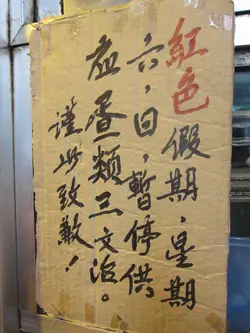 紅色假期,星期
六,日,暫停供
應蛋類三文治。
謹此致歉!